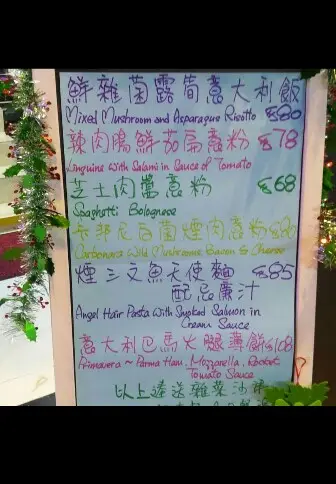 鮮雜菌露筍意大利飯
Mixed Mushroom and Asparagus Risotto $80
辣肉腸鮮茄扁意粉 $78
Linguine With Salami in Sauce of Tomato
芝士肉醬意粉 $68
Spaghetti Bolognese
卡邦尼白菌煙肉意粉
Carbonara Wild Mushrooms Bacon & Cheese
煙三文魚天使麵 $85
配忌廉汁
Angel Hair Pasta With Smoked Salmon in
Cream Sauce
意大利巴馬火腿薄餅 $108
Primavera ~ Parma Ham, Mozzarella, Rocket
Tomato Sauce
以上達送雜菜沙